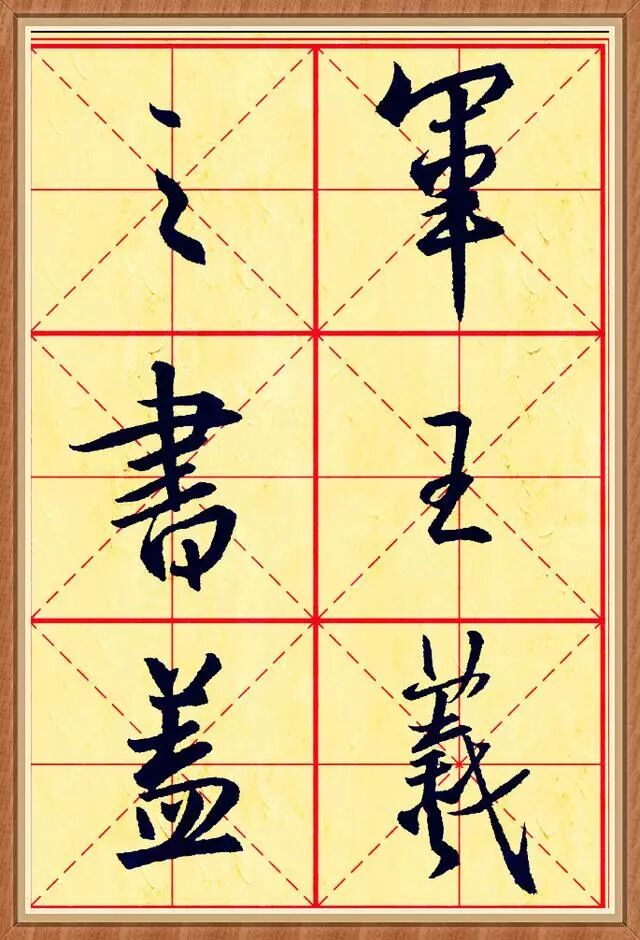 軍王羲
之書盖